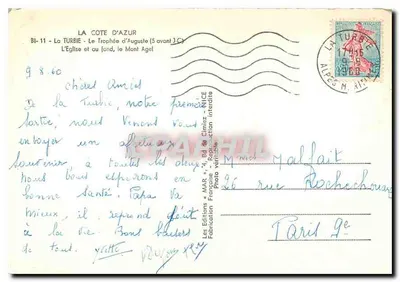 LA COTE D'AZUR
BI-11 - La TURBIE - Le Trophée d'Auguste (5 avant J.C)
L'Eglise et au fond, le Mont Agel
9.8.60
Chères Amies
La Turbie, notre
sortie, nous venons vous
envoyer un affectueux
souvenir à toutes les deux
nous vous espérons en
bonne santé. Papa va
mieux, il reprend goût
à la vie. Bons baisers
de tous. Yvette
Les Editions "MAR", NICE
Fabrication Française - Reproduction interdite
Photo véritable
LA TURBIE
17H15
9-8
1960
ALPES MARITIMES
Mmes Malfait
26 Rue
Rochechouart
Paris 9e
CPARAMA